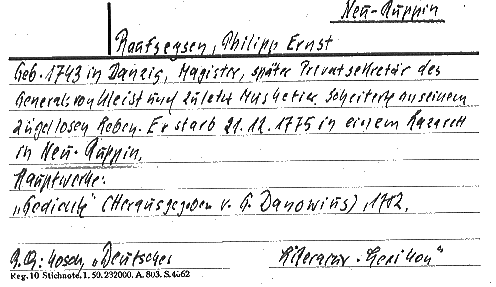 Neu-Ruppin
Raufseysen, Philipp Ernst
Geb. 1743 in Danzig, Magister, später Privatsekretär des
Generals von Kleist und zuletzt Musketier. Scheiterte an seinem
zügellosen Leben. Er starb 21.12.1775 in einem Lazarett
in Neu-Ruppin.
Hauptwerke:
„Gedichte" (Herausgegeben v. G. Danovius), 1782.
Kosch, „Deutsches Literatur-Lexikon"
Reg. 10 Stichnote. 1. 50. 232000. A. 803. S. 4662